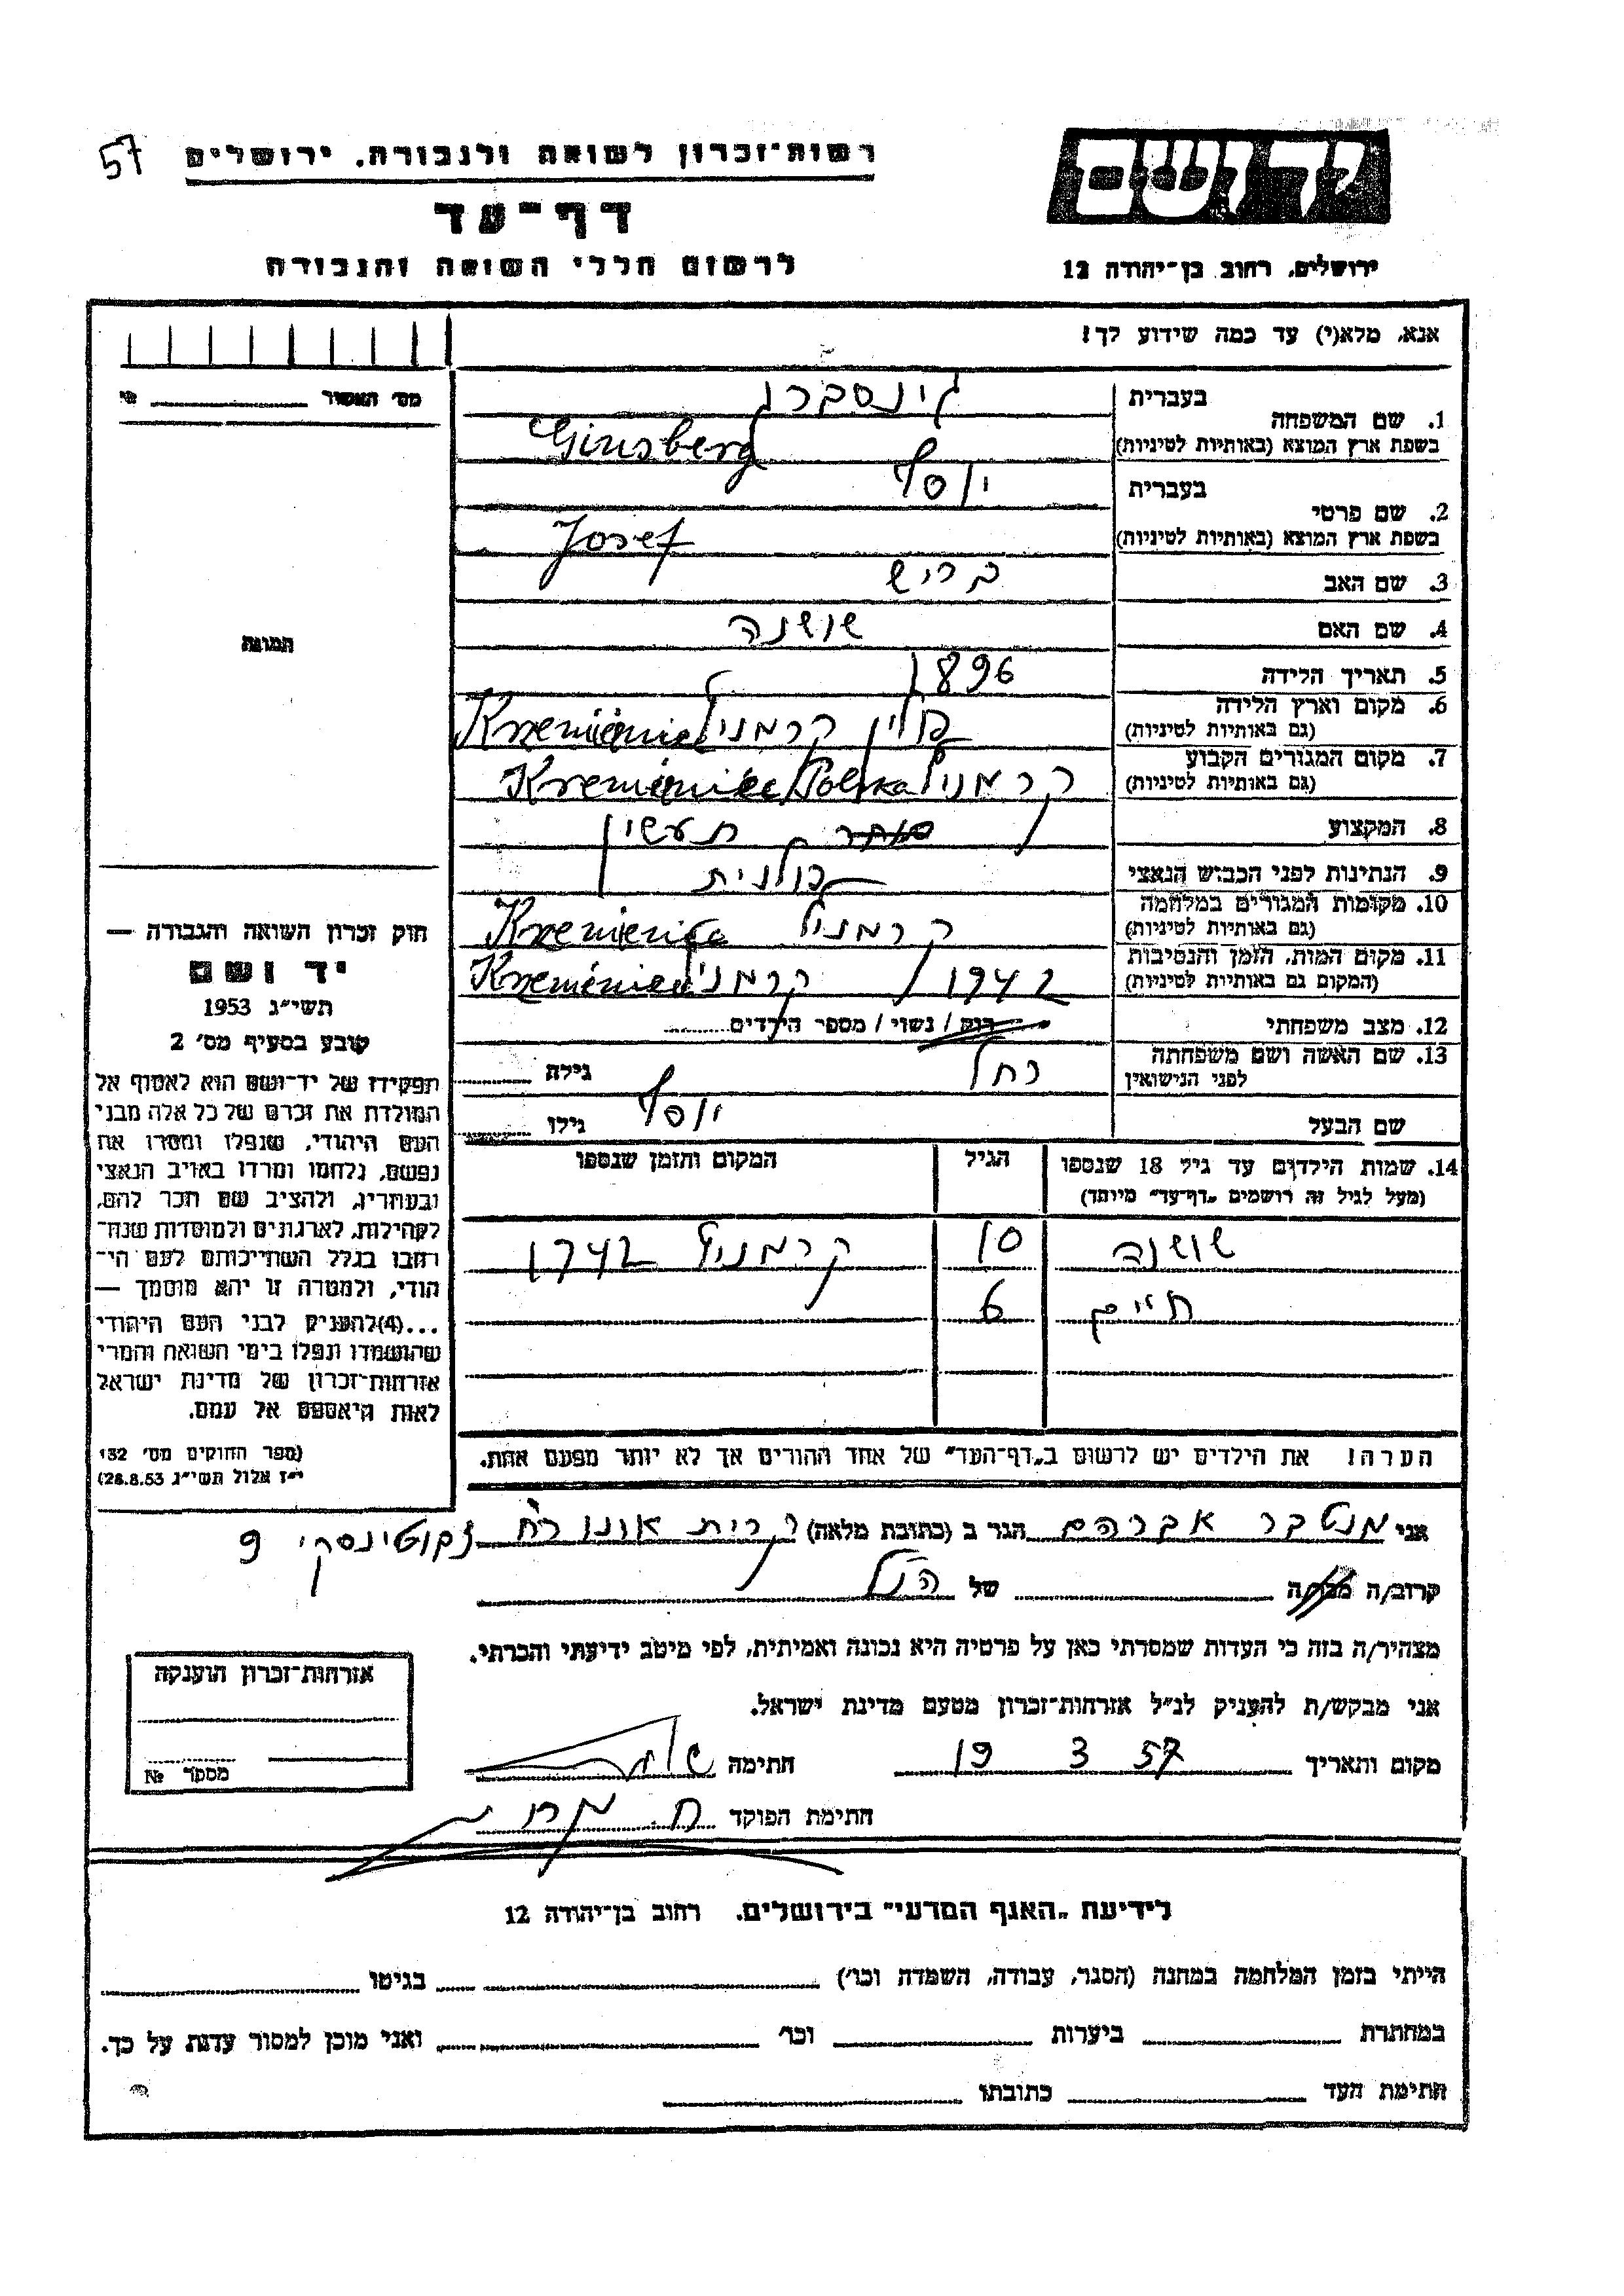 57
רשות־זכרון לשואה ולגבורה, ירושלים
דף־עד
לרשום חללי השואה והגבורה
יד ושם
ירושלים, רחוב בן־יהודה 12
אנא, מלא(י) עד כמה שידוע לך!
מס' האשור
תמונה
1. שם המשפחה בעברית גינסברג
בשפת ארץ המוצא (באותיות לטיניות) Ginsberg
2. שם פרטי בעברית יוסף
בשפת ארץ המוצא (באותיות לטיניות) Josef
3. שם האב בריש
4. שם האם שושנה
5. תאריך הלידה 1896
6. מקום וארץ הלידה פולין קרמניץ Krzemieniec
(גם באותיות לטיניות)
7. מקום המגורים הקבוע קרמניץ Kremieniec/Polska
(גם באותיות לטיניות)
8. המקצוע סוחר תעשין
9. הנתינות לפני הכבוש הנאצי פולנית
10. מקומות המגורים במלחמה קרמניץ
(גם באותיות לטיניות)
11. מקום המות, הזמן והנסיבות 1942 / קרמניץ Krzemieniec
(המקום גם באותיות לטיניות)
12. מצב משפחתי רוק / נשוי / מספר הילדים
13. שם האשה ושם משפחתה רחל גילה
לפני הנישואין
שם הבעל יוסף גילו
14. שמות הילדים עד גיל 18 שנספו הגיל המקום והזמן שנספו
(מעל לגיל זה רושמים „דף־עד" מיוחד)
שושנה 10 קרמניץ 1942
חיים 6
הערה! את הילדים יש לרשום ב„דף־העד" של אחד ההורים אך לא יותר מפעם אחת.
חוק זכרון השואה והגבורה —
יד ושם
תשי"ג 1953
קובע בסעיף מס' 2
תפקידו של יד־ושם הוא לאסוף אל
המולדת את זכרם של כל אלה מבני
העם היהודי, שנפלו ומסרו את
נפשם, נלחמו ומרדו באויב הנאצי
ובעוזריו, ולהציב שם וזכר להם,
לקהילות, לארגונים ולמוסדות שנח־
רבו בגלל השתייכותם לעם הי־
הודי, ולמטרה זו יהא מוסמך —
...(4) להעניק לבני העם היהודי
שהושמדו ונפלו בימי השואה והמרי
אזרחות־זכרון של מדינת ישראל
לאות היאספם אל עמם.
(ספר החוקים מס' 132
י"ז אלול תשי"ג 28.8.53)
אני מנטבר אברהם הגר ב (כתובת מלאה) קרית אונו רח' ז'בוטינסקי 9
קרוב/ה מכר/ה של הנ"ל
מצהיר/ה בזה כי העדות שמסרתי כאן על פרטיה היא נכונה ואמיתית, לפי מיטב ידיעתי והכרתי.
אני מבקש/ת להעניק לנ"ל אזרחות־זכרון מטעם מדינת ישראל.
מקום ותאריך 19 3 57 חתימה
חתימת הפוקד
אזרחות־זכרון הוענקה
מספר №
לידיעת „האגף המדעי" בירושלים, רחוב בן־יהודה 12
הייתי בזמן המלחמה במחנה (הסגר, עבודה, השמדה וכו') בגיטו
במחתרת ביערות וכו' ואני מוכן למסור עדות על כך.
חתימת העד כתובתו